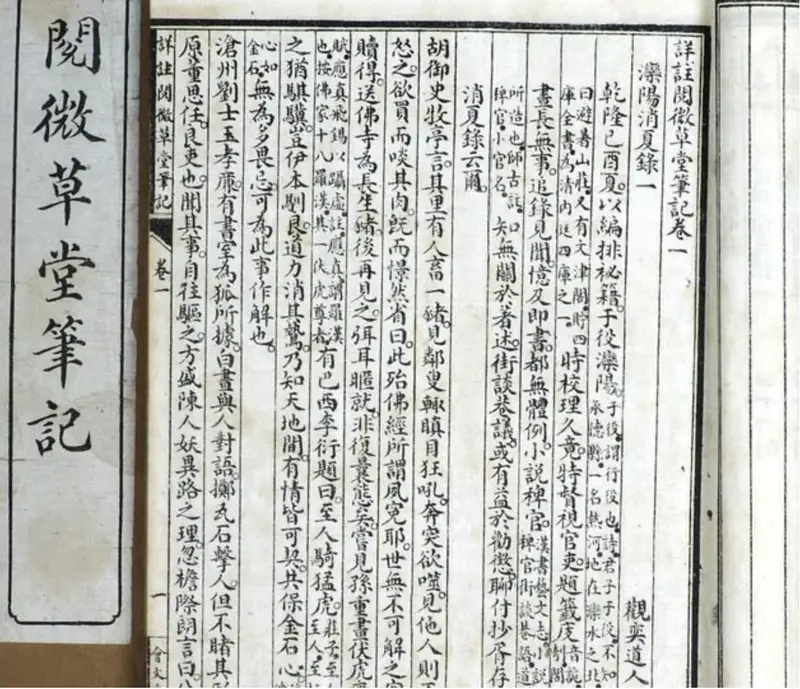 詳註閱微草堂筆記卷一
灤陽消夏錄一 觀奕道人
乾隆己酉夏。以編排祕籍。于役灤陽。于役。謂行役也。詩。君子于役。不知
承德縣。一名熱河。地在灤水之北
曰避暑山莊。又有文津閣。時四
庫全書為清內廷四庫之一。時校理久竟。特督視官吏。題籤庋
晝長無事。追錄見聞。憶及即書。都無體例。小說稗官。漢書藝文志。小說
稗官街談巷語道
所造也。師古註。
稗官。小官名。知無關於著述。街談巷議。或有益於勸懲。聊付抄胥存
消夏錄云爾。
胡御史牧亭言。其里有人畜一豬。見鄰叟輒瞋目狂吼。奔突欲噬。見他人則
怒之。欲買而啖其肉。既而憬然省曰。此殆佛經所謂夙冤耶。世無不可解之
贖得。送佛寺為長生豬。後再見之。弭耳暱就。非復曩態矣。嘗見孫重畫伏虎
賦。應真飛錫以躡虛。註。應真謂羅漢
也。按佛家十八羅漢。其一伏虎尊者。有巴西李衍題曰。至人騎猛虎。莊子。至人
之猶騏驥。豈伊本馴良。道力消其鷙。乃知天地間。有情皆可契。共保金石心
心如
金石。無為多畏忌。可為此事作解也。
滄州劉士玉孝廉。有書室為狐所據。白晝與人對語。擲瓦石擊人。但不睹其形
原董思任。良吏也。聞其事。自往驅之。方盛陳人妖異路之理。忽檐際朗言曰。
詳註閱微草堂筆記 卷一 一 會文
閱微草堂筆記